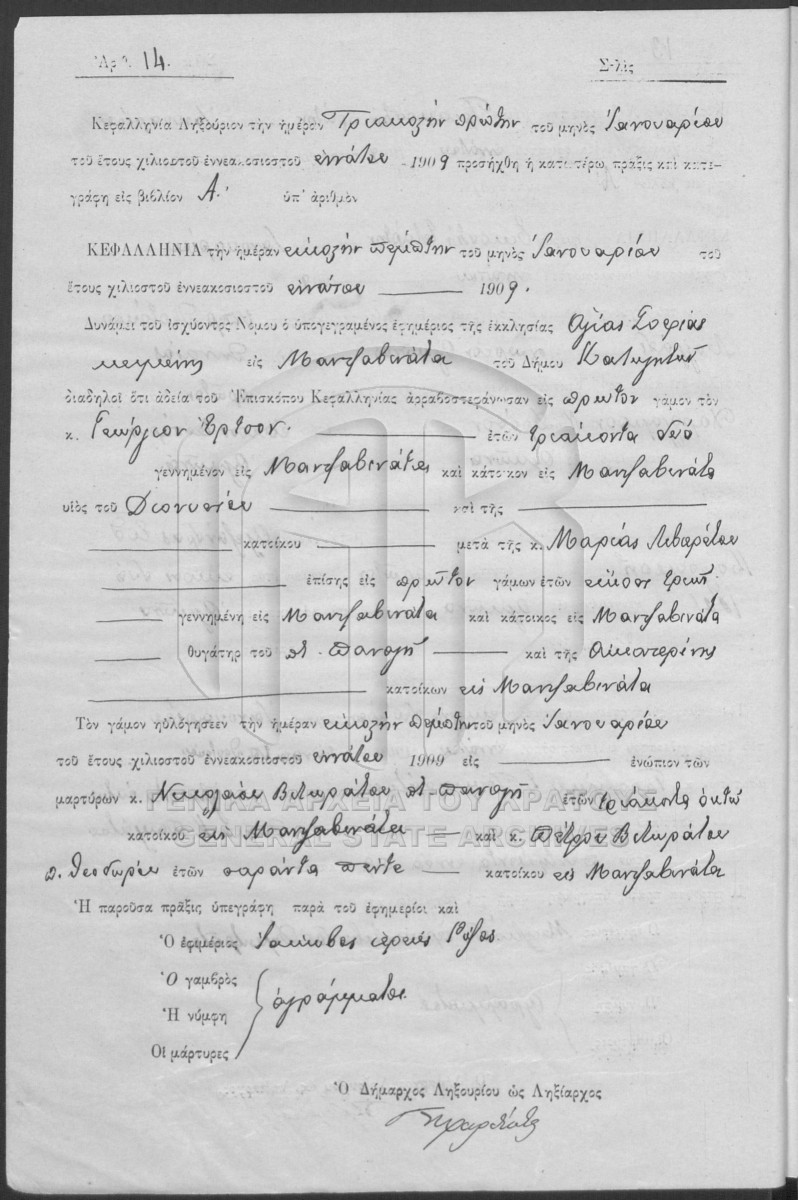 Ἀρθ. 14. Σελὶς
Κεφαλληνία Ληξούριον τὴν ἡμέραν Τριακοστὴν πρώτην τοῦ μηνὸς Ἰανουαρίου
τοῦ ἔτους χιλιοστοῦ ἐννεακοσιοστοῦ ἐννάτου 1909 προσήχθη ἡ κατωτέρω πρᾶξις καὶ κατε-
γράφη εἰς βιβλίον Α.' ὑπ' ἀριθμὸν
ΚΕΦΑΛΛΗΝΙΑ τὴν ἡμέραν εἰκοστὴν πέμπτην τοῦ μηνὸς Ἰανουαρίου τοῦ
ἔτους χιλιοστοῦ ἐννεακοσιοστοῦ ἐννάτου 1909.
Δυνάμει τοῦ ἰσχύοντος Νόμου ὁ ὑπογεγραμένος ἐφημέριος τῆς ἐκκλησίας Ἁγίας Σοφίας
κειμένης εἰς Μαντζαβινάτα τοῦ Δήμου
διαδηλοῖ ὅτι ἀδεία τοῦ Ἐπισκόπου Κεφαλληνίας ἀρραβοστεφάνωσαν εἰς πρῶτον γάμον τὸν
κ. Γεώργιον ἐτῶν τριάκοντα δύο
γεννημένον εἰς Μαντζαβινάτα καὶ κάτοικον εἰς Μαντζαβινάτα
υἱὸς τοῦ Διονυσίου καὶ τῆς
κατοίκου μετὰ τῆς κ. Μαρίας Λιβεράτου
ἐπίσης εἰς πρῶτον γάμων ἐτῶν εἴκοσι τριῶν
γεννημένη εἰς Μαντζαβινάτα καὶ κάτοικος εἰς Μαντζαβινάτα
θυγάτηρ τοῦ π. Παναγῆ καὶ τῆς Αἰκατερίνης
κατοίκων εἰς Μαντζαβινάτα
Τὸν γάμον ηὐλόγησεεν τὴν ἡμέραν εἰκοστὴν πέμπτην τοῦ μηνὸς Ἰανουαρίου
τοῦ ἔτους χιλιοστοῦ ἐννεακοσιοστοῦ ἐννάτου 1909 εἰς ἐνώπιον τῶν
μαρτύρων κ. Νικολάου Βικοράτου π. Παναγῆ ἐτῶν τριάκοντα ὀκτὼ
κατοίκου εἰς Μαντζαβινάτα καὶ κ. Πέτρου Βικοράτου
π. Θεοδώρου ἐτῶν σαράντα πέντε κατοίκου εἰς Μαντζαβινάτα
ΓΕΝΙΚΑ ΑΡΧΕΙΑ ΤΟΥ ΚΡΑΤΟΥΣ
GENERAL STATE ARCHIVES
Ἡ παροῦσα πρᾶξις ὑπεγράφη παρὰ τοῦ ἐφημερίοι καὶ
Ὁ ἐφιμέριος Ἰάκωβος ἱερεὺς
Ὁ γαμβρὸς
Ἡ νύμφη ἀγράμματοι
Οἱ μάρτυρες
Ὁ Δήμαρχος Ληξουρίου ὡς Ληξίαρχος